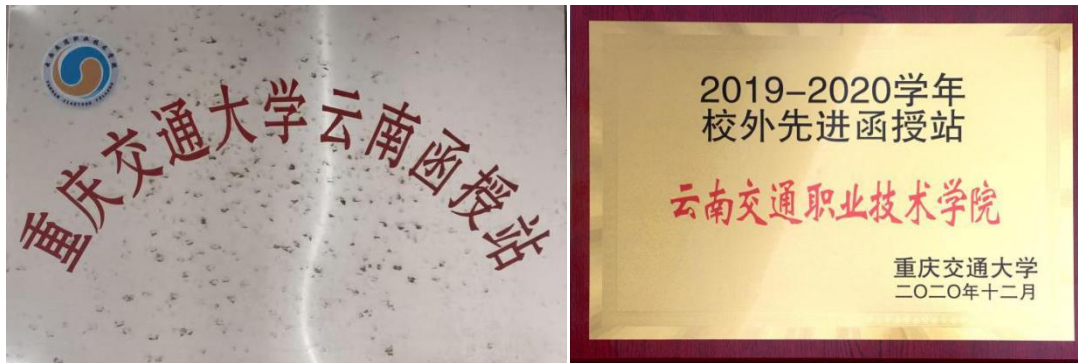 重庆交通大学云南函授站
2019-2020学年
校外先进函授站
云南交通职业技术学院
重庆交通大学
二〇二〇年十二月